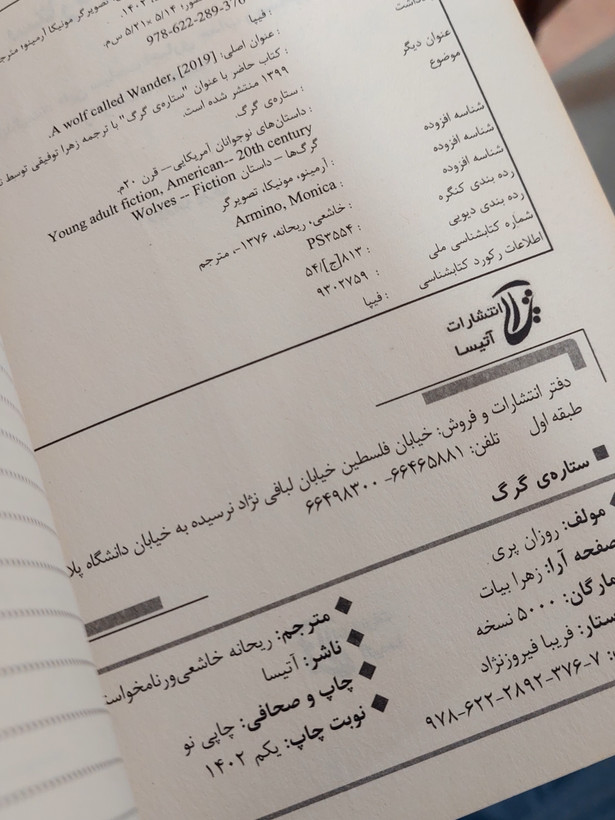 تصویرگر مونیکا آرمینو؛ مترجم
۵/۱۴ ×۵/۲۱ س‌م.
978-622-289-376
: فیپا
عنوان دیگر : عنوان اصلی: A wolf called Wander, [2019].
: کتاب حاضر با عنوان "ستاره‌ی گرگ" با ترجمه زهرا توفیقی توسط
۱۳۹۹ منتشر شده است.
: ستاره‌ی گرگ.
موضوع : داستان‌های نوجوانان آمریکایی — قرن ۲۰م.
Young adult fiction, American-- 20th century
گرگ‌ها – داستان Wolves -- Fiction
شناسه افزوده : آرمینو، مونیکا، تصویرگر
شناسه افزوده : Armino, Monica
شناسه افزوده : خاشعی، ریحانه، ۱۳۷۶-، مترجم
رده بندی کنگره : PS۳۵۵۴
رده بندی دیویی : ۸۱۳[ج]/۵۴
شماره کتابشناسی ملی : ۹۳۰۲۷۵۹
اطلاعات رکورد کتابشناسی : فیپا
انتشارات
آتیسا
دفتر انتشارات و فروش: خیابان فلسطین خیابان لبافی نژاد نرسیده به خیابان دانشگاه
طبقه اول تلفن: ۶۶۴۶۵۸۸۱- ۶۶۴۹۸۳۰۰
ستاره‌ی گرگ
مولف: روزان پری
مترجم: ریحانه خاشعی‌ورنامخواستی
صفحه آرا: زهرا بیات
ناشر: آتیسا
۵۰۰۰ نسخه
چاپ و صحافی: چاپی نو
فریبا فیروزنژاد
نوبت چاپ: یکم ۱۴۰۲
۹۷۸-۶۲۲-۲۸۹۲-۳۷۶-۷